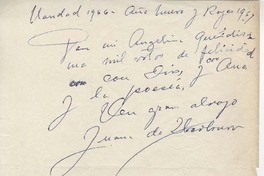 Navidad 1966 - Año Nuevo y Reyes 1967
Para mi Angelina queridísi
ma mil votos de felicidad
con Dios, y con Ana
y la poesía,
Un gran abrazo
Juana de Ibarbourou